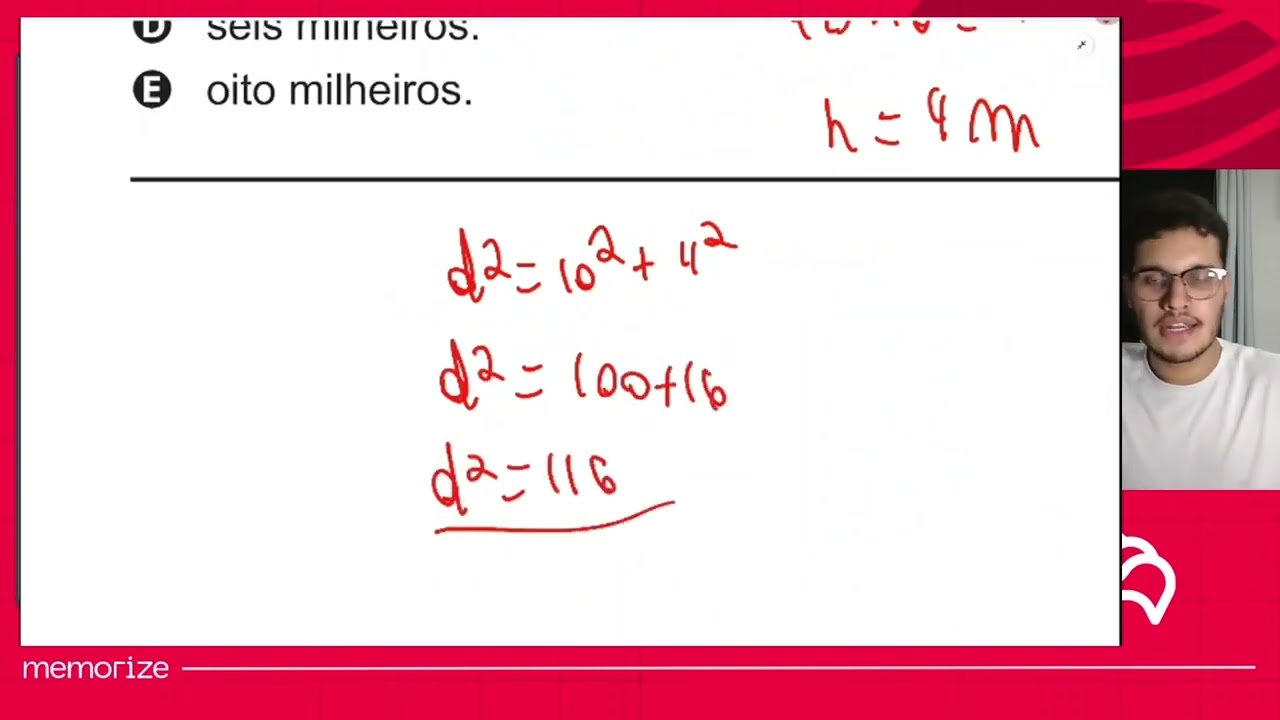 D seis milheiros.
E oito milheiros.
h = 4 m
d² = 10² + 4²
d² = 100 + 16
d² = 116
memorize